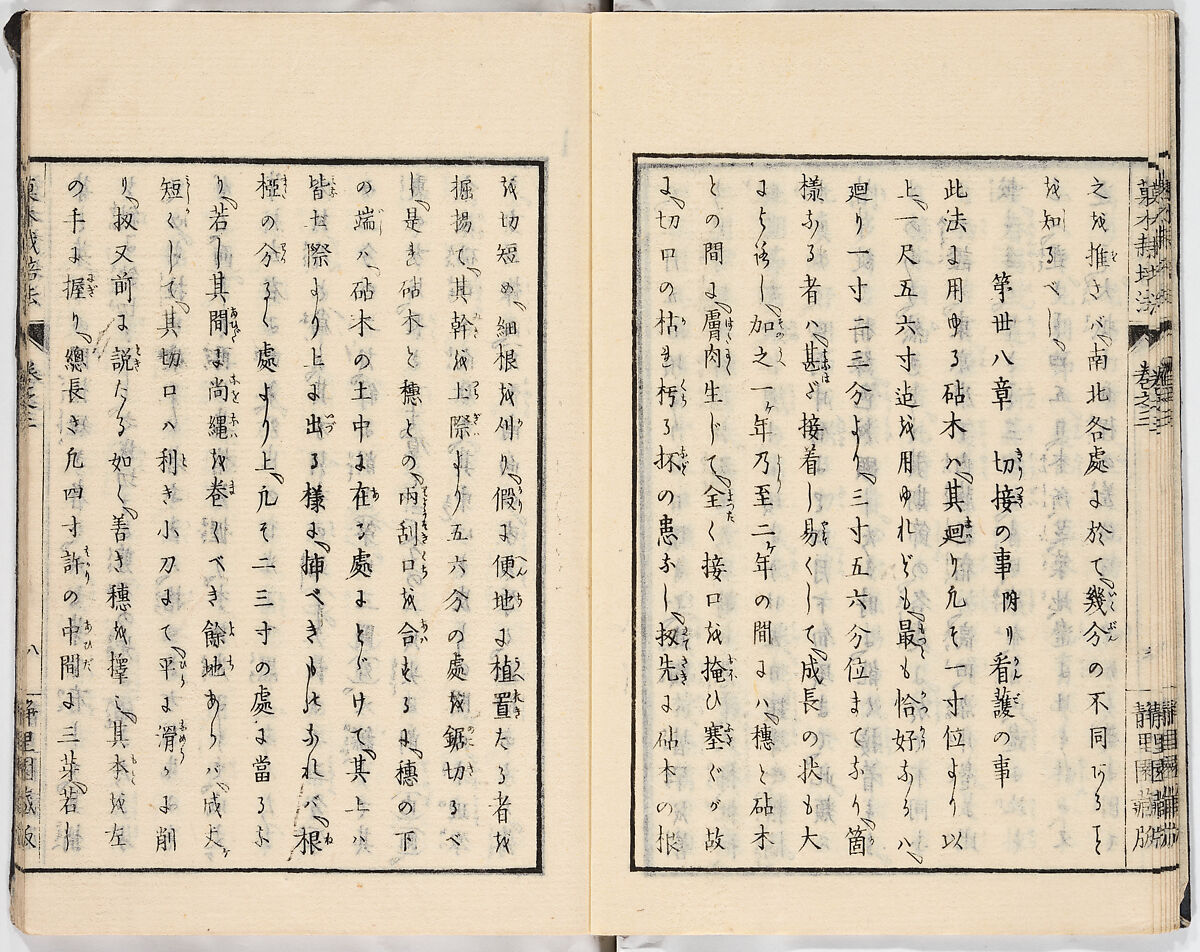 之を推さバ南北各處に於て幾分の不同あること
を知るべし
第丗八章 切接の事附り看護の事
此法に用ゆる砧木ハ其廻り凡一寸位より以
上一尺五六寸迠を用ゆれども最も恰好なるハ
廻り一寸二三分より三寸五六分位まてなり箇
様なる者ハ甚だ接着し易くして成長の状も大
によろし加之一ヶ年乃至二ヶ年の間にハ穗と砧木
との間に膚肉生じて全く接口を掩ひ塞ぐが故
に切口の枯れ朽る抔の患なし扨先に砧木の根
を切短め細根を切り假に便地に植置たる者を
掘揚て其幹を土際より五六分の處を鋸切るべ
し是き砧木と穗との兩刮口を合するに穗の下
の端ハ砧木の土中に在る處にとゞけて其上ハ
皆土際より上に出る樣に挿べきものなれバ根
椏の分るく處より上凡そ二三寸の處に當るな
り若し其間に尚縄を卷くべき餘地あらバ成丈ヶ
短くして其切口ハ利き小刀にて平に滑かに削
り扨又前に説たる如く善き穗を擇し其本を左
の手に握り總長き凡四寸許の中間に三芽若ハ
菓木栽培法 卷之三
八 靜里園藏版